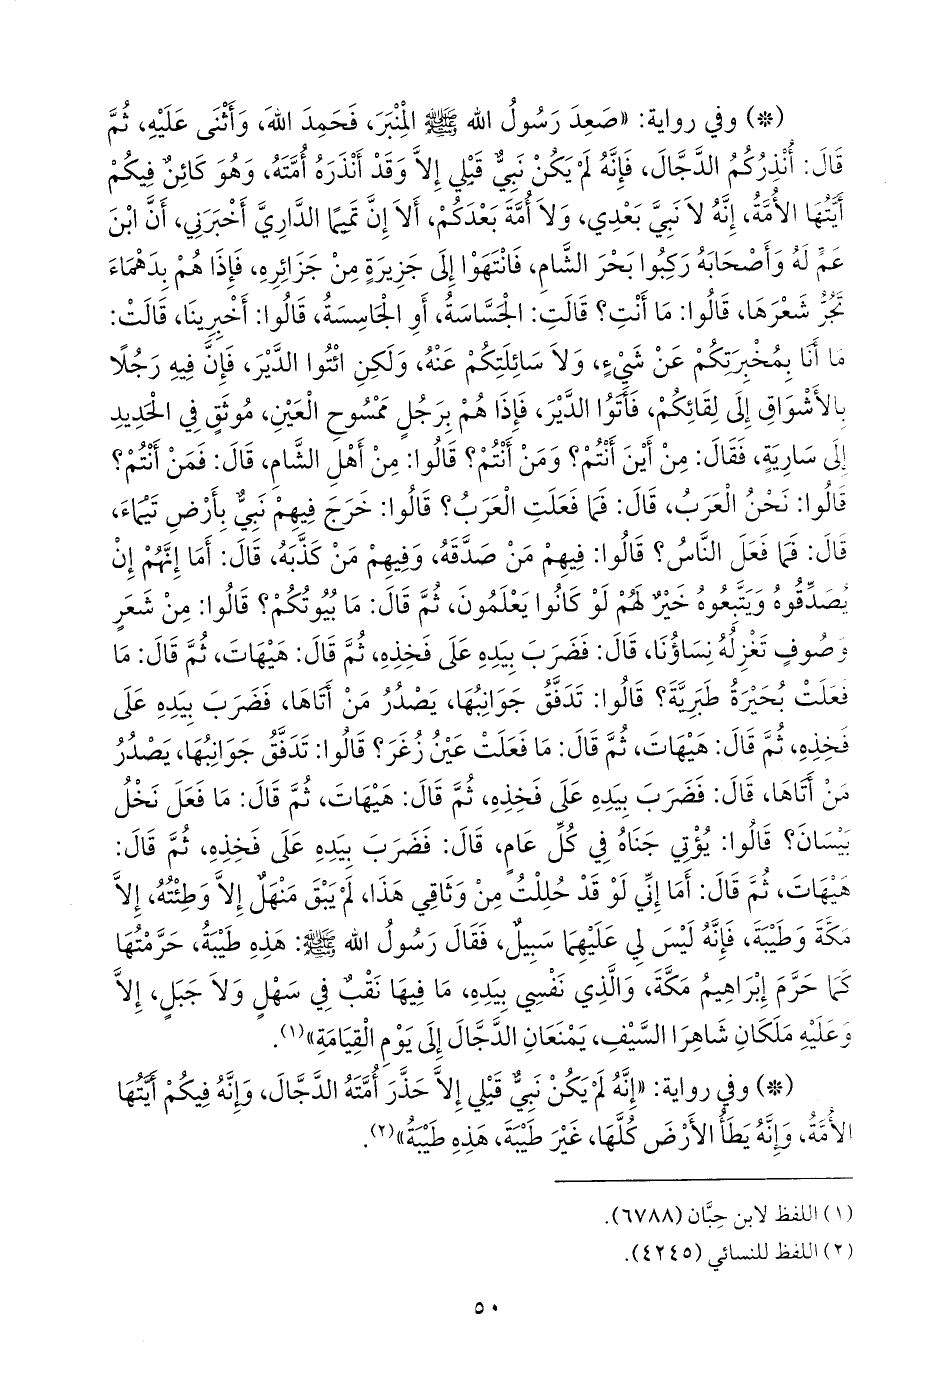 (*) وفي رواية: «صَعِدَ رَسُولُ الله ﷺ المِنْبَرَ، فَحَمِدَ اللهَ، وَأَثْنَى عَلَيْهِ، ثُمَّ
قَالَ: أُنْذِرُكُمُ الدَّجَّالَ، فَإِنَّهُ لَمْ يَكُنْ نَبِيٌّ قَبْلِي إِلاَّ وَقَدْ أَنْذَرَهُ أُمَّتَهُ، وَهُوَ كَائِنٌ فِيكُمْ
أَيَّتُهَا الأُمَّةُ، إِنَّهُ لاَ نَبِيَّ بَعْدِي، وَلاَ أُمَّةَ بَعْدَكُمْ، أَلاَ إِنَّ تَمِيمًا الدَّارِيَّ أَخْبَرَنِي، أَنَّ ابْنَ
عَمٍّ لَهُ وَأَصْحَابَهُ رَكِبُوا بَحْرَ الشَّامِ، فَانْتَهَوْا إِلَى جَزِيرَةٍ مِنْ جَزَائِرِهِ، فَإِذَا هُمْ بِدَهْمَاءَ
تَجُرُّ شَعْرَهَا، قَالُوا: مَا أَنْتِ؟ قَالَتِ: الْجَسَّاسَةُ، أَوِ الْجَاسِسَةُ، قَالُوا: أَخْبِرِينَا، قَالَتْ:
مَا أَنَا بِمُخْبِرَتِكُمْ عَنْ شَيْءٍ، وَلاَ سَائِلَتِكُمْ عَنْهُ، وَلَكِنِ ائْتُوا الدَّيْرَ، فَإِنَّ فِيهِ رَجُلًا
بِالأَشْوَاقِ إِلَى لِقَائِكُمْ، فَأَتَوُا الدَّيْرَ، فَإِذَا هُمْ بِرَجُلٍ مَمْسُوحِ الْعَيْنِ، مُوثَقٍ فِي الْحَدِيدِ
إِلَى سَارِيَةٍ، فَقَالَ: مِنْ أَيْنَ أَنْتُمْ؟ وَمَنْ أَنْتُمْ؟ قَالُوا: مِنْ أَهْلِ الشَّامِ، قَالَ: فَمَنْ أَنْتُمْ؟
قَالُوا: نَحْنُ الْعَرَبُ، قَالَ: فَمَا فَعَلَتِ الْعَرَبُ؟ قَالُوا: خَرَجَ فِيهِمْ نَبِيٌّ بِأَرْضِ تَيْمَاءَ،
قَالَ: فَمَا فَعَلَ النَّاسُ؟ قَالُوا: فِيهِمْ مَنْ صَدَّقَهُ، وَفِيهِمْ مَنْ كَذَّبَهُ، قَالَ: أَمَا إِنَّهُمْ إِنْ
يُصَدِّقُوهُ وَيَتَّبِعُوهُ خَيْرٌ لَهُمْ لَوْ كَانُوا يَعْلَمُونَ، ثُمَّ قَالَ: مَا بُيُوتُكُمْ؟ قَالُوا: مِنْ شَعَرٍ
وَصُوفٍ تَغْزِلُهُ نِسَاؤُنَا، قَالَ: فَضَرَبَ بِيَدِهِ عَلَى فَخِذِهِ، ثُمَّ قَالَ: هَيْهَاتَ، ثُمَّ قَالَ: مَا
فَعَلَتْ بُحَيْرَةُ طَبَرِيَّةَ؟ قَالُوا: تَدَفَّقُ جَوَانِبُهَا، يَصْدُرُ مَنْ أَتَاهَا، فَضَرَبَ بِيَدِهِ عَلَى
فَخِذِهِ، ثُمَّ قَالَ: هَيْهَاتَ، ثُمَّ قَالَ: مَا فَعَلَتْ عَيْنُ زُغَرَ؟ قَالُوا: تَدَفَّقُ جَوَانِبُهَا، يَصْدُرُ
مَنْ أَتَاهَا، قَالَ: فَضَرَبَ بِيَدِهِ عَلَى فَخِذِهِ، ثُمَّ قَالَ: هَيْهَاتَ، ثُمَّ قَالَ: مَا فَعَلَ نَخْلُ
بَيْسَانَ؟ قَالُوا: يُؤْتِي جَنَاهُ فِي كُلِّ عَامٍ، قَالَ: فَضَرَبَ بِيَدِهِ عَلَى فَخِذِهِ، ثُمَّ قَالَ:
هَيْهَاتَ، ثُمَّ قَالَ: أَمَا إِنِّي لَوْ قَدْ حُلِلْتُ مِنْ وَثَاقِي هَذَا، لَمْ يَبْقَ مَنْهَلٌ إِلاَّ وَطِئْتُهُ، إِلاَّ
مَكَّةَ وَطَيْبَةَ، فَإِنَّهُ لَيْسَ لِي عَلَيْهِمَا سَبِيلٌ، فَقَالَ رَسُولُ الله ﷺ: هَذِهِ طَيْبَةُ، حَرَّمْتُهَا
كَمَا حَرَّمَ إِبْرَاهِيمُ مَكَّةَ، وَالَّذِي نَفْسِي بِيَدِهِ، مَا فِيهَا نَقْبٌ فِي سَهْلٍ وَلاَ جَبَلٍ، إِلاَّ
وَعَلَيْهِ مَلَكَانِ شَاهِرَا السَّيْفِ، يَمْنَعَانِ الدَّجَّالَ إِلَى يَوْمِ الْقِيَامَةِ»(١).
(*) وفي رواية: «إِنَّهُ لَمْ يَكُنْ نَبِيٌّ قَبْلِي إِلاَّ حَذَّرَ أُمَّتَهُ الدَّجَّالَ، وَإِنَّهُ فِيكُمْ أَيَّتُهَا
الأُمَّةُ، وَإِنَّهُ يَطَأُ الأَرْضَ كُلَّهَا، غَيْرَ طَيْبَةَ، هَذِهِ طَيْبَةُ»(٢).
(١) اللفظ لابن حِبَّان (٦٧٨٨).
(٢) اللفظ للنسائي (٤٢٤٥).
٥٠